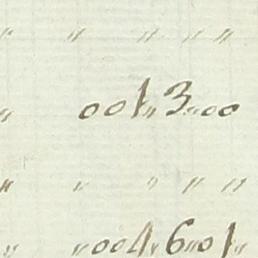 " " " " "
" 001"3"00
" " " " "
" "004"6"01"